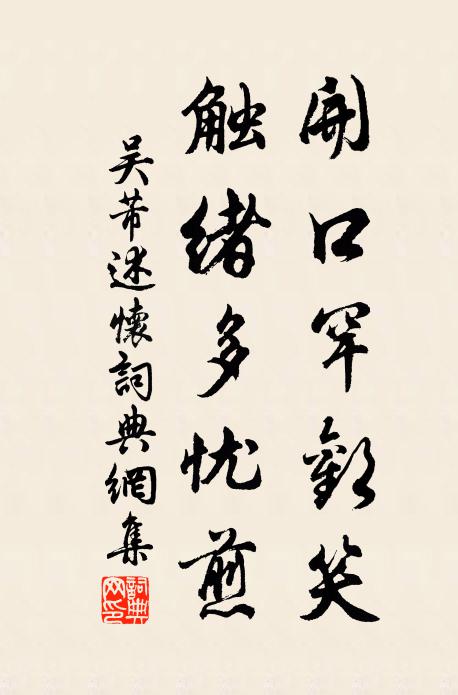 開口罕歡笑
触绪多忧煎
吴芾述懷詞典網集
詞典网印